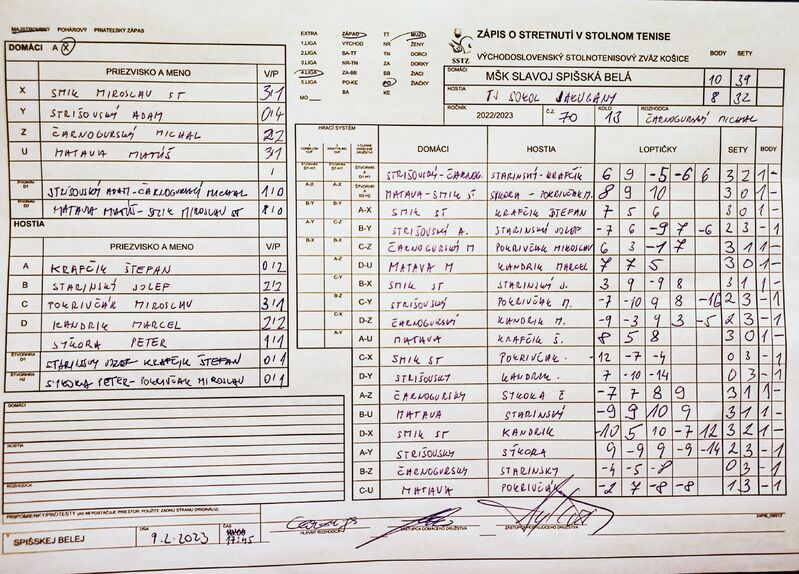 MAJSTROVSKÝ POHÁROVÝ PRIATEĽSKÝ ZÁPAS
DOMÁCI A X
PRIEZVISKO A MENO V/P
X SMIK MIROSLAV ST 3/1
Y STRIŠOVSKÝ ADAM 0/4
Z ČARNOGURSKÝ MICHAL 2/2
U MATAVA MATÚŠ 3/1
/
ŠTVORHRA D1 STRIŠOVSKÝ ADAM-ČARNOGURSKÝ MICHAL 1/0
ŠTVORHRA D2 MATAVA MATÚŠ-SMIK MIROSLAV ST 1/0
HOSTIA
PRIEZVISKO A MENO V/P
A KRAFČIK ŠTEFAN 0/2
B STARINSKÝ JOZEF 2/2
C POKRIVČÁK MIROSLAV 3/1
D KANDRIK MARCEL 2/2
SÝKORA PETER 1/1
ŠTVORHRA D1 STARINSKÝ JOZEF-KRAFČIK ŠTEFAN 0/1
ŠTVORHRA H2 SÝKORA PETER-POKRIVČÁK MIROSLAV 0/1
DOMÁCI
HOSTIA
ROZHODCA
PRIPOMIENKY/PROTESTY (AK NEPOSTAČUJE PRIESTOR, POUŽITE ZADNÚ STRANU ORIGINÁLU)
V SPIŠSKEJ BELEJ DŇA 9.2.2023 ČAS 17:45
EXTRA ZÁPAD TT MUŽI
1.LIGA VÝCHOD NR ŽENY
2.LIGA BA-TT TN DORCI
3.LIGA NR-TN ZA DORKY
4.LIGA ZA-BB BB ŽIACI
5.LIGA PO-KE PO ŽIAČKY
MO BA KE
SSTZ
ZÁPIS O STRETNUTÍ V STOLNOM TENISE
VÝCHODOSLOVENSKÝ STOLNOTENISOVÝ ZVÄZ KOŠICE
BODY SETY
DOMÁCI MŠK SLAVOJ SPIŠSKÁ BELÁ 10 39
HOSTIA TJ SOKOL JAKUBANY 8 32
ROČNÍK 2022/2023 Č.Z. 70 KOLO 13 ROZHODCA ČARNOGURSKÝ MICHAL
HRACÍ SYSTÉM
DOMÁCI HOSTIA LOPTIČKY SETY BODY
STRIŠOVSKÝ-ČARNOG. STARINSKÝ-KRAFČIK 6 9 -5 -6 6 3 2 1 -
A-X MATAVA-SMIK ST SÝKORA-POKRIVČÁK M. 8 9 10 3 0 1 -
B-Y A-X SMIK ST KRAFČIK ŠTEFAN 7 5 6 3 0 1 -
B-Y STRIŠOVSKÝ A. STARINSKÝ JOZEF -7 6 -9 7 -6 2 3 - 1
C-Z ČARNOGURSKÝ M POKRIVČÁK MIROSLAV 6 3 -1 7 3 1 1 -
D-U MATAVA M KANDRIK MARCEL 7 7 5 3 0 1 -
B-X SMIK ST STARINSKÝ J. 3 9 -9 8 3 1 1 -
C-Y STRIŠOVSKÝ POKRIVČÁK M. -7 -10 9 8 -16 2 3 - 1
D-Z ČARNOGURSKÝ KANDRIK M. -9 -3 9 3 -5 2 3 - 1
A-U MATAVA KRAFČIK Š. 8 5 8 3 0 1 -
C-X SMIK ST POKRIVČÁK -12 -7 -4 0 3 - 1
D-Y STRIŠOVSKÝ KANDRIK 7 -10 -14 0 3 - 1
A-Z ČARNOGURSKÝ SÝKORA -7 7 8 9 3 1 1 -
B-U MATAVA STARINSKÝ -9 9 10 9 3 1 1 -
D-X SMIK ST KANDRIK -10 5 10 -7 12 3 2 1 -
A-Y STRIŠOVSKÝ SÝKORA 9 -9 -9 9 -14 2 3 - 1
B-Z ČARNOGURSKÝ STARINSKÝ -4 -5 -8 0 3 - 1
C-U MATAVA POKRIVČÁK -2 7 -8 -8 1 3 - 1
HLAVNÝ ROZHODCA ZÁSTUPCA DOMÁCEHO DRUŽSTVA ZÁSTUPCA HOSŤUJÚCEHO DRUŽSTVA